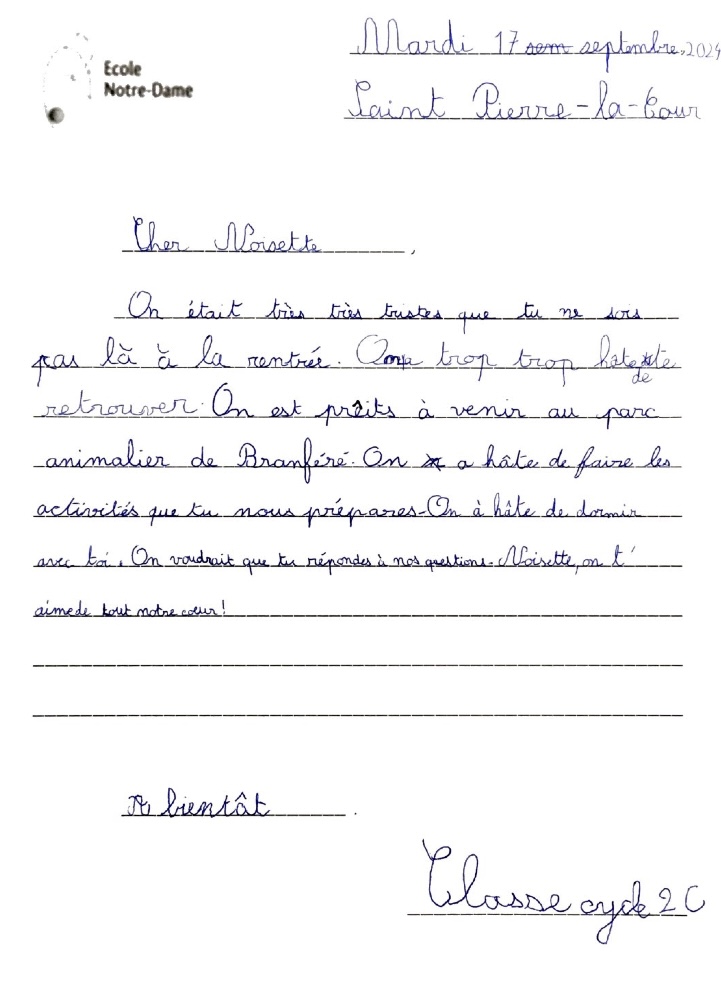 Ecole
Notre-Dame
Mardi 17 septembre, 2024
Saint Pierre-la-Cour
Cher Noisette,
On était très très tristes que tu ne sois
pas là à la rentrée. On a trop trop hâte de te
retrouver. On est prêts à venir au parc
animalier de Branféré. On a hâte de faire les
activités que tu nous prépares. On à hâte de dormir
avec toi. On voudrait que tu répondes à nos questions. Noisette, on t'
aime de tout notre cœur!
A bientôt.
Classe cycle 2 C